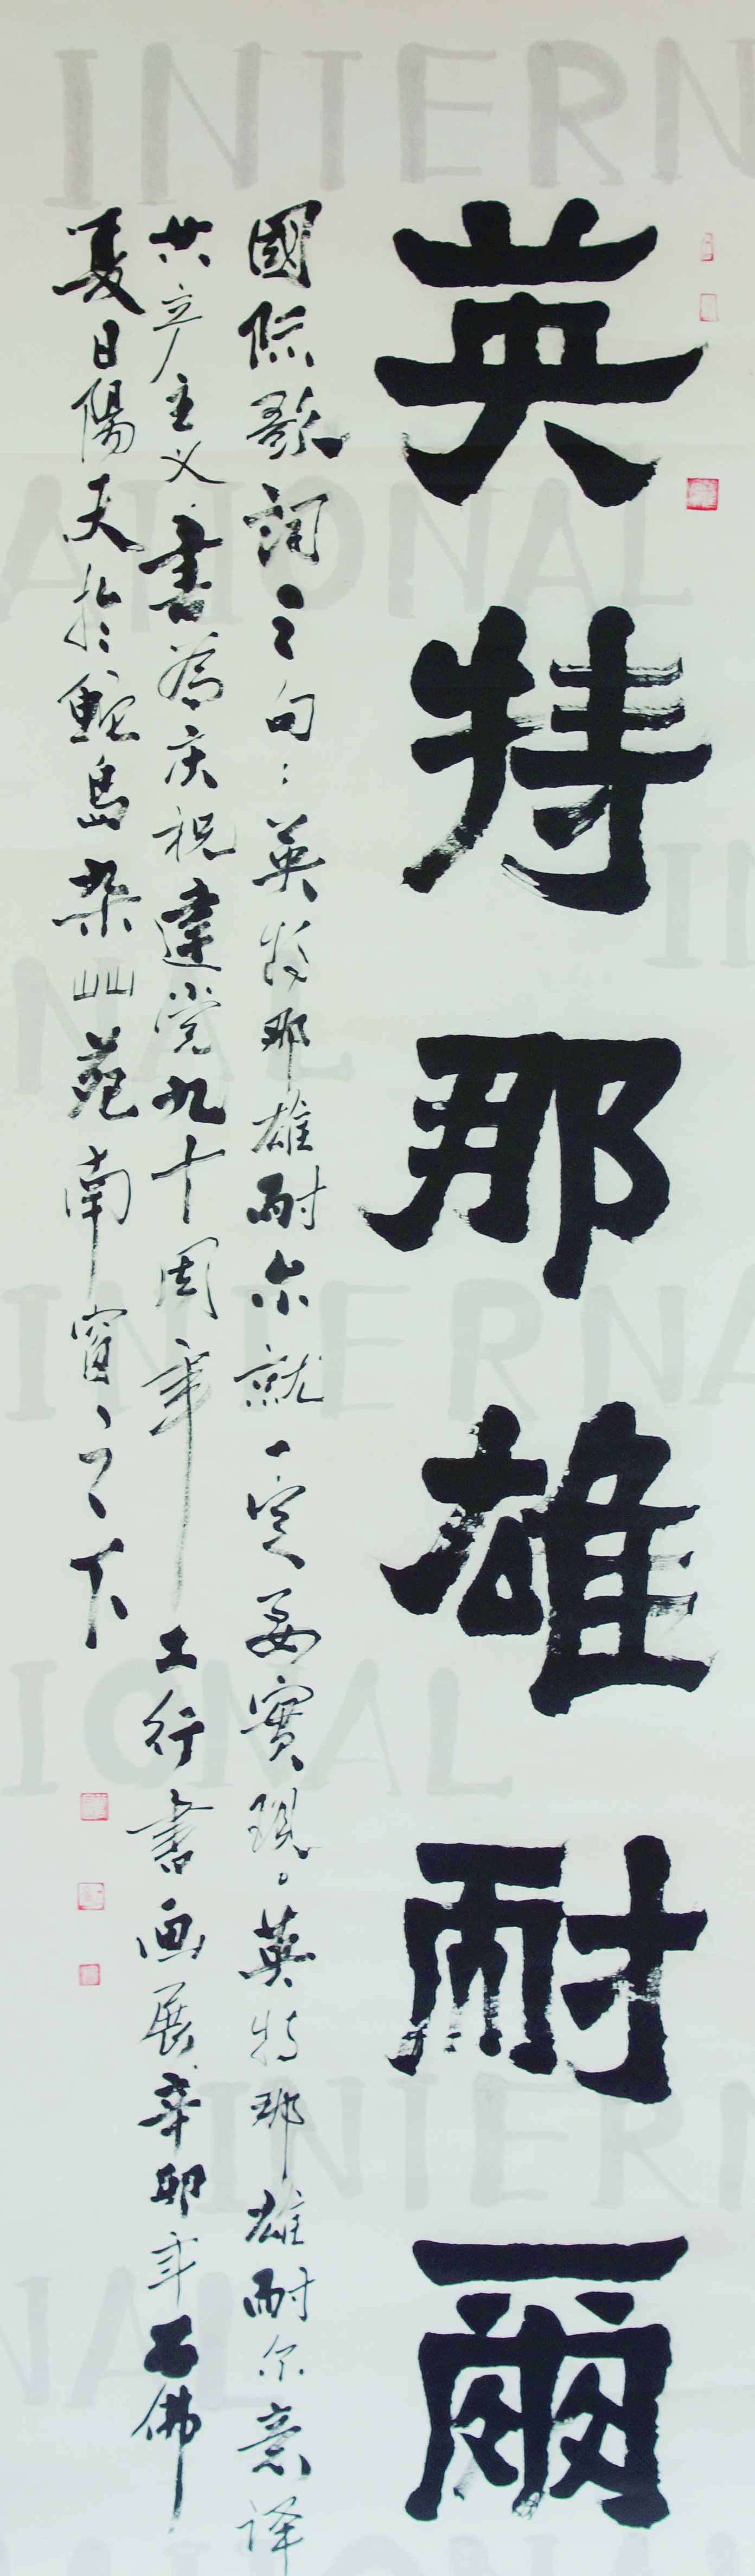 英特那雄耐爾
國际歌詞之句：英特那雄耐尔就一定要實現。英特那雄耐尔意译
共产主义书為庆祝建党九十周年 工行書画展辛卯年石佛
夏日陽天於鮀島桑山苑南窗之下
INTERN
ATIONAL
IN
NAL
INTERNA
IONAL
INTERN
NAL